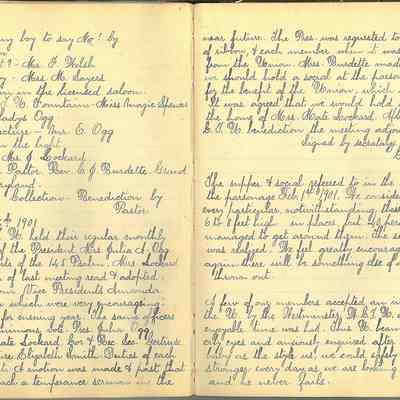 ng boy to say No! by
Mrs. F. Welsh
Miss M. Sayers
in the licensed saloon.
Fountains - Miss Magie Spence
ladys Ogg
ecture - Mrs. E. Ogg
in the light
Mrs. J. Lockard
Pastor Rev. C. J. Burdette Grand
aryland.
Collection - Benediction by
Pastor.
1901
held their regular monthly
of the President Mrs Julia A. Ogg
of the 145 Psalm. Mrs. Lockard
of last meeting read & adopted.
Vice Presidents Amanda
which were very encouraging:
for ensuing year. The same officers
unanimous vote. Pres. Julia Ogg
ate Lockard Cor & Rec Sec. Gertrude
Elizabeth Smith. Duties of each
A motion was made & past that
each a temperance sermon in the
near future. The Pres. was requested to
of ribbon, & each member when it was
from the Union. Mrs. Burdette made
we should hold a social at the parson
for the benefit of the Union, which
It was agreed that we would hold
the home of Mrs. Kate Lockard. Af
C. T. U. benediction the meeting adjou
Signed by secretary
The supper & social referred to in the
the parsonage Feb 1st 1901. We conside
every particular, notwithstanding those
6 to 8 feet high in places, but 40 per
managed to get around there. The
was realized. We feel greatly encourag
again there will be something else
thrown out.
A few of our members accepted an in
the W. by the Westminster, W. C. T. U.
enjoyable time was had. Thus W. beam
city eyes and anxiously enquired after
baby as the style is, we could safely
stronger every day as we are looking
and he never fails.